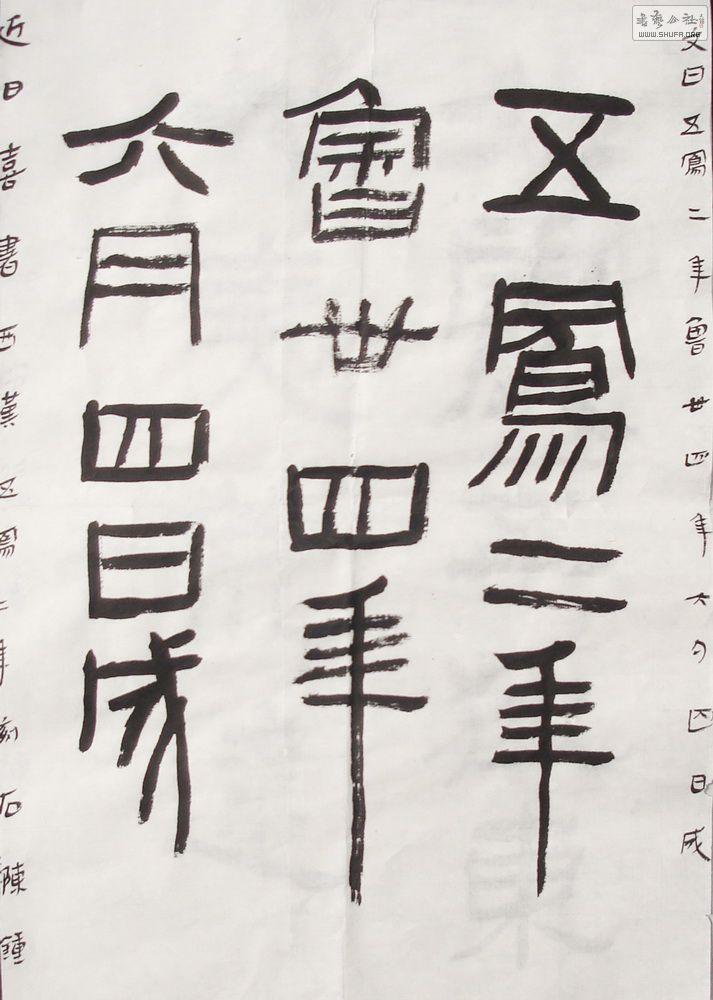 文曰五鳳二年魯卅四年六月四日成
五鳳二年
魯卅四年
六月四日成
近日喜書西漢五鳳二年刻石陳鍾
書藝公社
WWW.SHUFA.ORG